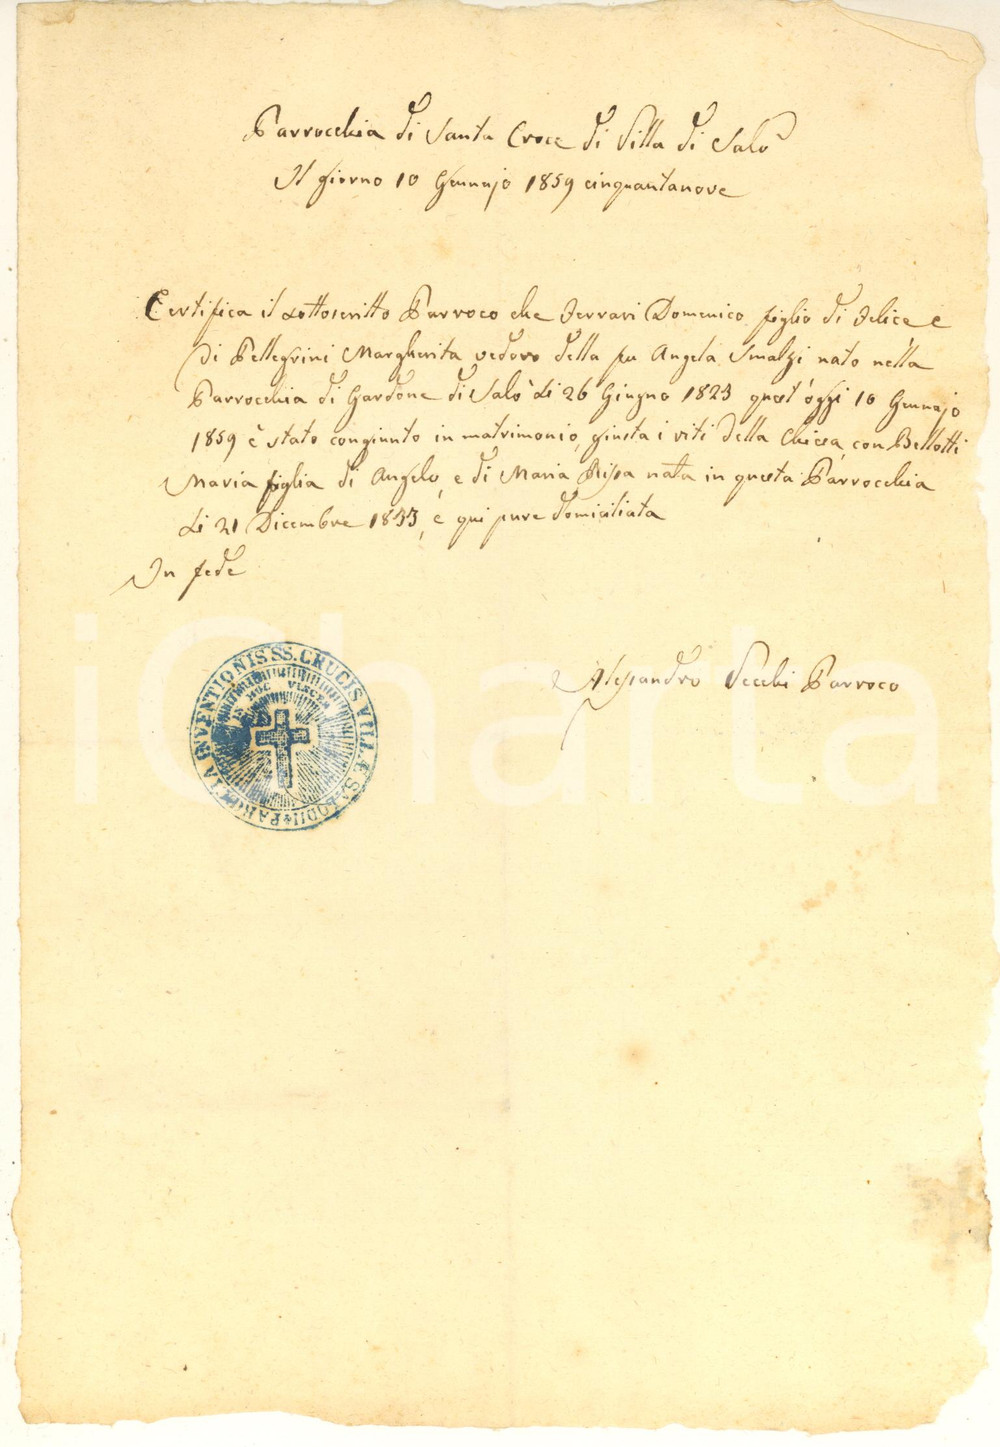 Parrocchia di Santa Croce di Villa di Salò
Il giorno 10 Gennajo 1859 cinquantanove
Certifica il sottoscritto Parroco che Ferrari Domenico figlio di Felice e
di Pellegrini Margherita vedovo della fu Angela Smalzi nato nella
Parrocchia di Gardone di Salò li 26 Giugno 1823 quest'oggi 10 Gennajo
1859 è stato congiunto in matrimonio, giusta i riti della Chiesa, con Bellotti
Maria figlia di Angelo, e di Maria nata in questa Parrocchia
li 21 Dicembre 1833, e qui pure domiciliata
In fede
Alessandro Secchi Parroco
PAROCIA INVENTIONIS SS. CRUCIS VILLÆ SALODII
IN HOC VINCES
iCharta